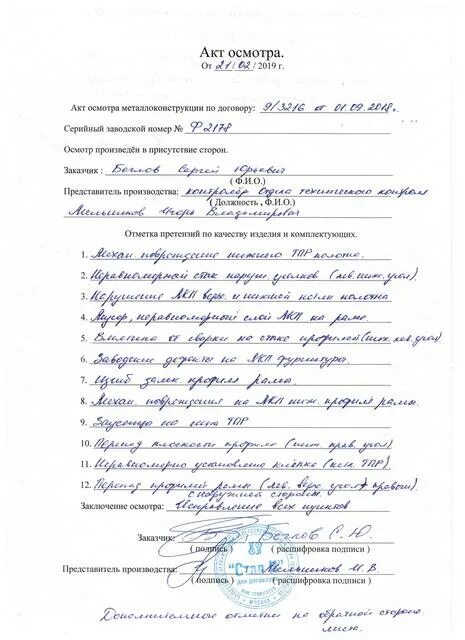 Акт осмотра.
От 21 / 02 / 2019 г.
Акт осмотра металлоконструкции по договору: 9/3216 от 01.09.2018г.
Серийный заводской номер № Ф2178
Осмотр произведён в присутствие сторон.
Заказчик : Беглов Сергей Юрьевич
( Ф.И.О.)
Представитель производства: контролёр Отдела технического контроля
( Должность , Ф.И.О.)
Мельников Игорь Владимирович
Отметка претензий по качеству изделия и комплектующих.
1. Механ. повреждение нижнего ТПР полотна.
2. Неравномерный стык наружн. уголков (лев. ниж. угол)
3. Нарушение ЛКП верх. и нижней петли полотна
4. Мусор, неравномерный слой ЛКП на раме.
5. Вмятина от сварки на стыке профилей (ниж. лев. угол)
6. Заводские дефекты на ЛКП фурнитура.
7. Изгиб замк. профиля рамы.
8. Механ. повреждения на ЛКП ниж. профиля рамы.
9. Заусенцы на ТПР
10. Перепад плоскости профиля (ниж. прав. угол)
11. Неравномерно установлена клёпка (ТПР).
12. Перепад профилей рамы (лев. верх. угол + правый)
с наружней стороны.
Заключение осмотра: Исправление всех пунктов
Заказчик: Беглов С. Ю.
( подпись ) ( расшифровка подписи )
Представитель производства: Мельников И. В.
( подпись ) ( расшифровка подписи )
"Стал
для договоров
МОСКВА
Дополнительное отметки на обратной стороне
листа.